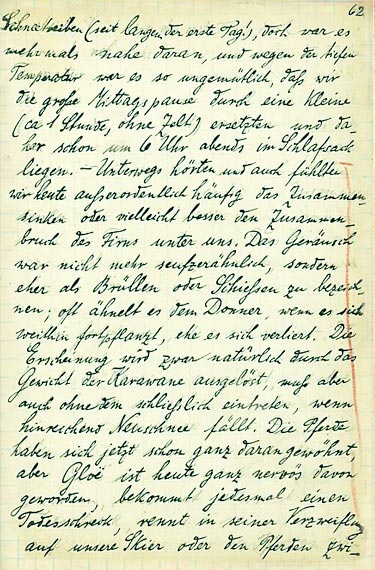 62
Schneetreiben (seit langem der erste Tag!), doch war es
mehrmals nahe daran, und wegen der tiefen
Temperatur war es so ungemütlich, daß wir
die große Mittagspause durch eine kleine
(ca 1 Stunde, ohne Zelt) ersetzten und da-
her schon um 6 Uhr abends im Schlafsack
liegen. – Unterwegs hörten und auch fühlten
wir heute außerordentlich häufig das Zusammen-
sinken oder vielleicht besser den Zusammen-
bruch des Firns unter uns. Das Geräusch
war nicht mehr seufzerähnlich, sondern
eher als Brüllen oder Schießen zu bezeich-
nen; oft ähnelt es dem Donner, wenn es sich
weithin fortpflanzt, ehe es sich verliert. Die
Erscheinung wird zwar natürlich durch das
Gewicht der Karawane ausgelöst, muß aber
auch ohne dem schließlich eintreten, wenn
hinreichend Neuschnee fällt. Die Pferde
haben sich jetzt schon ganz daran gewöhnt,
aber Gloë ist heute ganz nervös davon
geworden, bekommt jedesmal einen
Todesschreck, rennt in seiner Verzweiflung
auf unsere Skier oder den Pferden zwi-